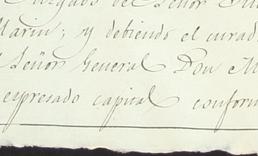 Juzgado del Señor
Marin; y debiendo el curad
Señor General Don M
expresado capital conform